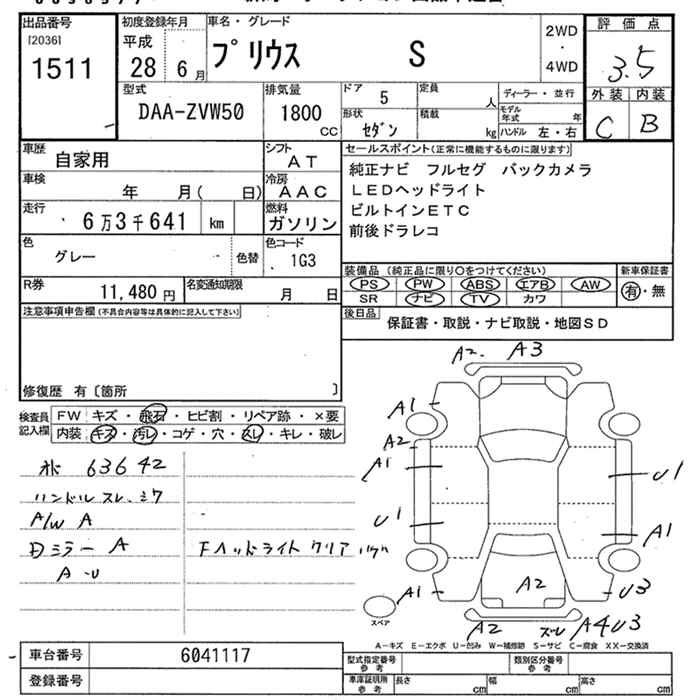 出品番号 初度登録年月 車名・グレード 評価点
[2036] 平成 プリウス S 2WD・4WD 3.5
1511 28 6月 外装 内装
型式 排気量 ドア 5 定員 人 ディーラー・並行 C B
DAA-ZVW50 1800 cc 形状 セダン 積載 kg モデル年式 年
ハンドル 左・右
車歴 自家用 シフト AT セールスポイント(正常に機能するものに限ります)
車検 年 月( 日) 冷房 AAC 純正ナビ フルセグ バックカメラ
LEDヘッドライト
走行 6万3千641 km 燃料 ガソリン ビルトインETC
前後ドラレコ
色 グレー 色替 色コード 1G3
装備品(純正品に限り○をつけてください) 新車保証書
R券 11,480円 名変通知期限 月 日 PS PW ABS エアB AW 有・無
SR ナビ TV カワ
注意事項申告欄(不具合内容等は具体的に記入して下さい) 後日品 保証書・取説・ナビ取説・地図SD
修復歴 有〔箇所 〕
検査員記入欄 FW キズ・飛石・ヒビ割・リペア跡・×要
内装 キズ・汚レ・コゲ・穴・スレ・キレ・破レ
A2 A3
A1
A2
A1 U1
U1 A1
A1 A2 U3
A2 スレ A4U3
63642
ハンドルスレ、シワ
A/W A
ミラー A
A-U
Fヘッドライト クリア ハゲ
スペア
A-キズ E-エクボ U-凹み W-補修跡 S-サビ C-腐食 XX-交換済
車台番号 6041117 型式指定番号 参考 類別区分番号 参考
登録番号 車庫証明所 参考 長さ cm 幅 cm 高さ cm